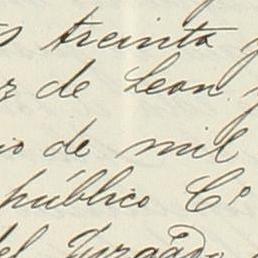 treinta y
de Leon
io de mil
público Cº
del Juzgado